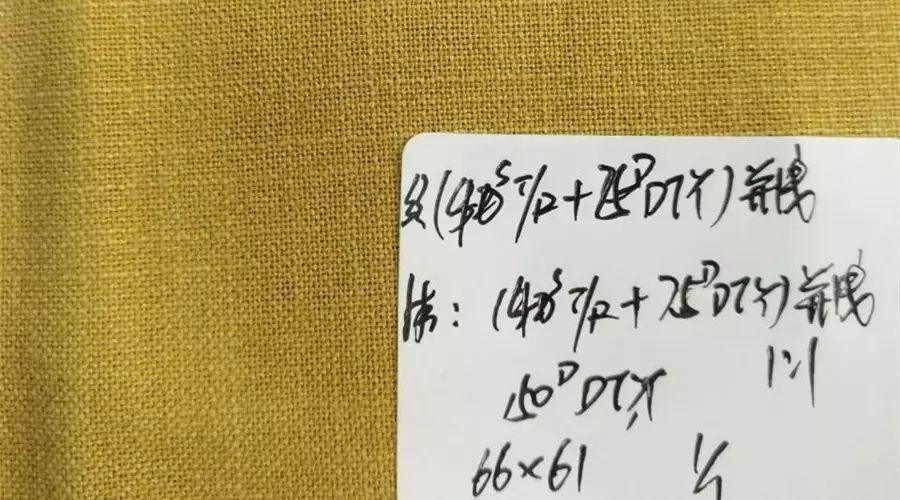 经(40S T/R+75D DTY)并捻
纬：(40S T/R+75D DTY)并捻
150D DTY 1:1
66×61 1/1